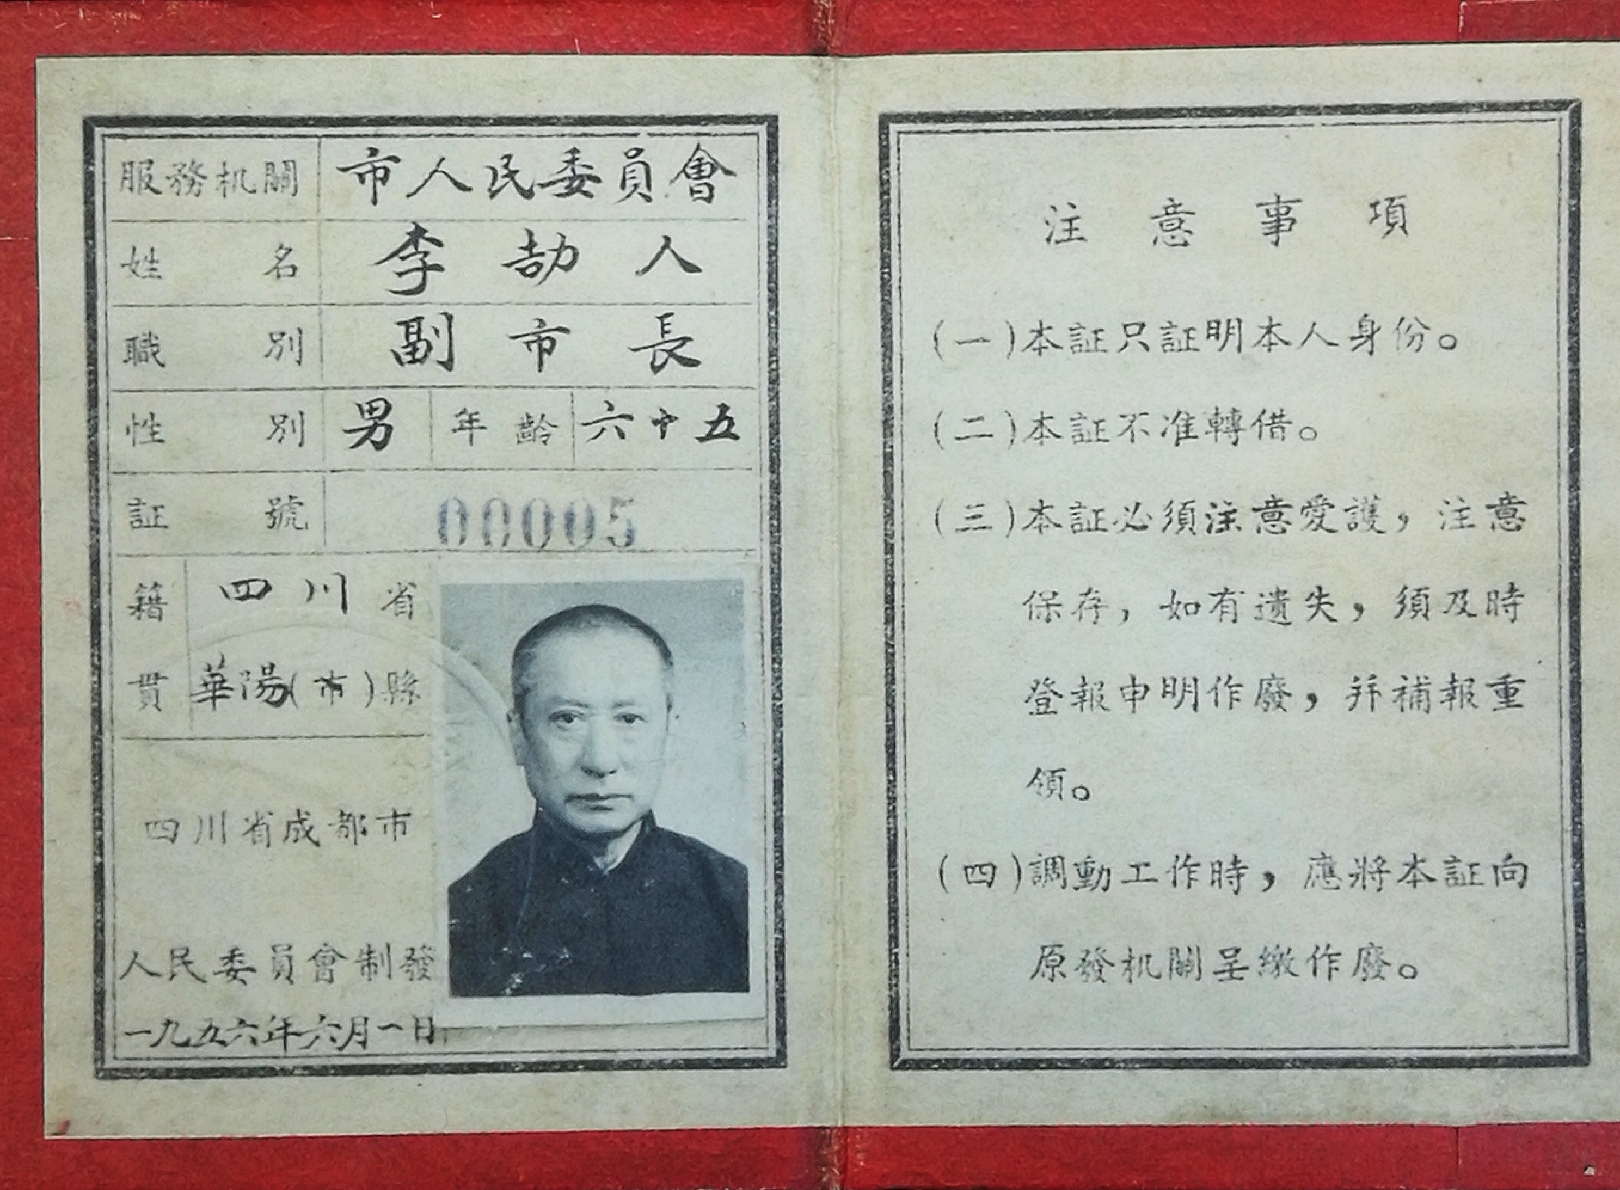 服務机關 市人民委員會
姓名 李劼人
職別 副市長
性別 男 年齡 六十五
証號 00005
籍貫 四川省
華陽(市)縣
四川省成都市
人民委員會制發
一九五六年六月一日
注意事項
(一)本証只証明本人身份。
(二)本証不准轉借。
(三)本証必須注意愛護,注意
保存,如有遺失,須及時
登報申明作廢,并補報重
領。
(四)調動工作時,應將本証向
原發机關呈繳作廢。